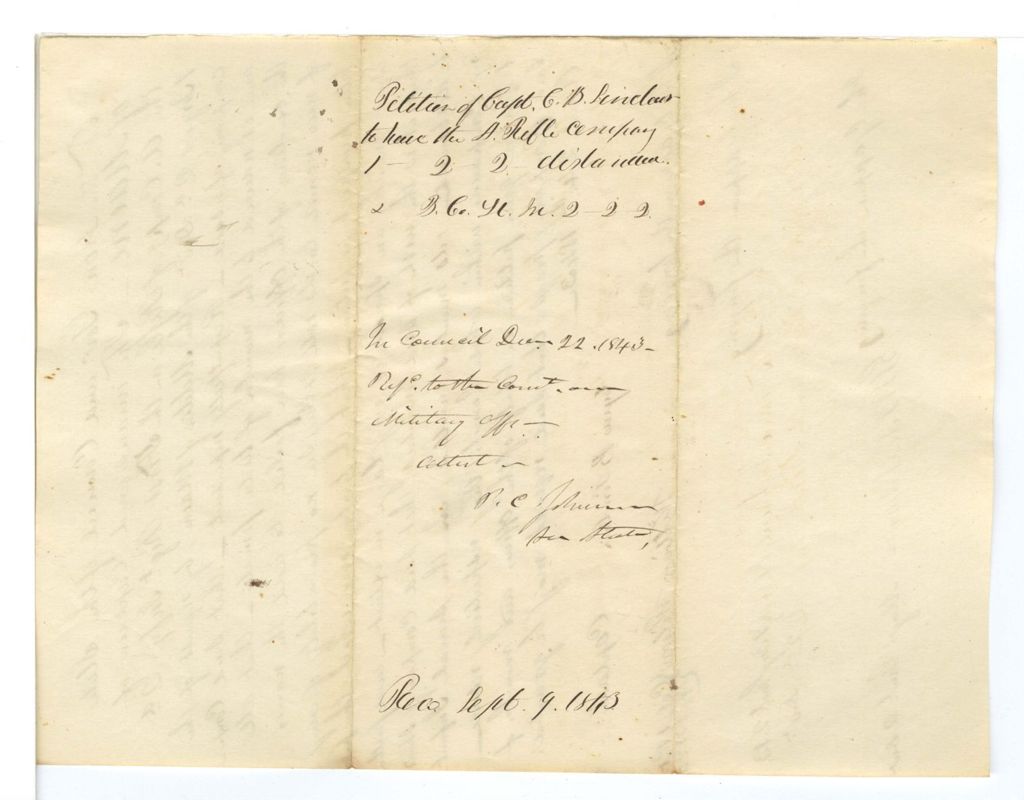 Petition of Capt. C. B. Sinclair
to have the A. Rifle Company
1 - 2 - 2 disbanded.
& B. Co. It. In. 2 - 2 2.
In Council Dec 22. 1843 -
Refd. to the Comt. on
Military Affs -
attest -
P. C. Johnson
Sec State,
Recd Sept. 9. 1843